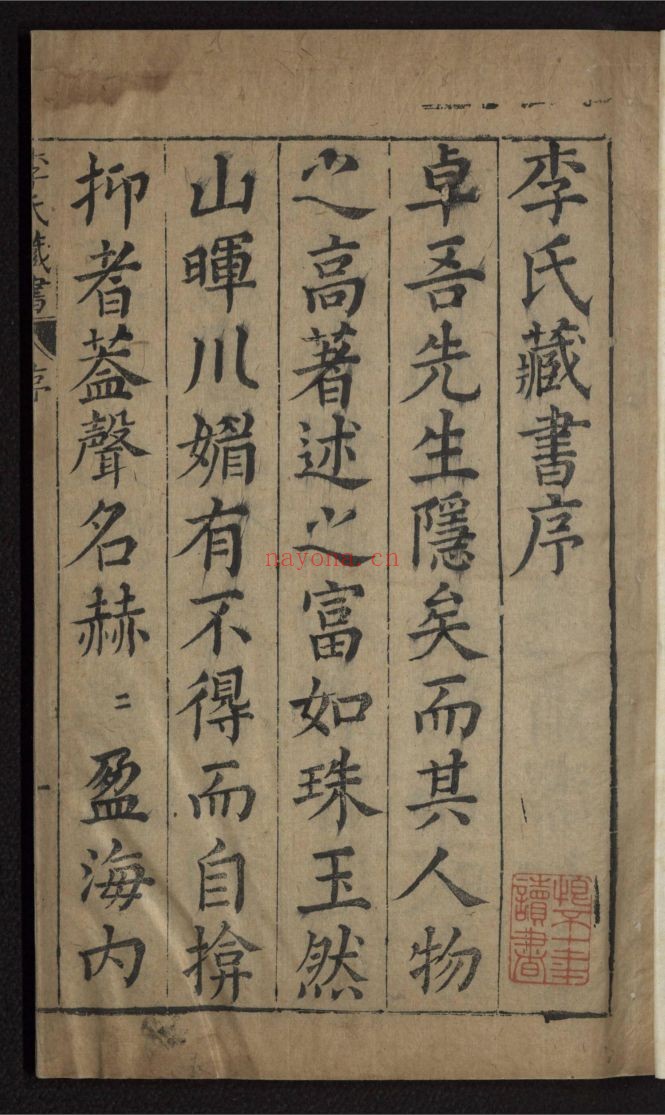 李氏藏書序
卓吾先生隱矣而其人物
之高著述之富如珠玉然
山暉川媚有不得而自揜
抑者蓋聲名赫〻盈海内
李氏藏書
序
一
讀書
nayona.cn